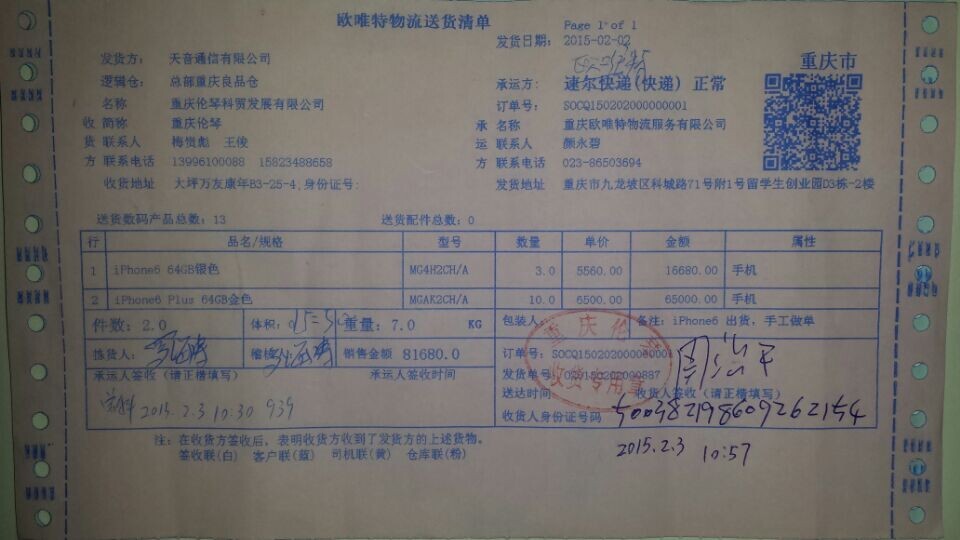 欧唯特物流送货清单
Page 1 of 1
发货日期: 2015-02-02
发货方: 天音通信有限公司
重庆市
逻辑仓: 总部重庆良品仓
承运方: 速尔快递(快递) 正常
名称 重庆伦琴科贸发展有限公司
订单号: SOCQ150202000000001
收 简称 重庆伦琴
承 名称 重庆欧唯特物流服务有限公司
货 联系人 梅贵彪 王俊
运 联系人 颜永碧
方 联系电话 13996100088 15823488658
方 联系电话 023-86503694
收货地址 大坪万友康年B3-25-4,身份证号:
发货地址 重庆市九龙坡区科城路71号附1号留学生创业园D3栋-2楼
送货数码产品总数: 13 送货配件总数: 0
行 品名/规格 型号 数量 单价 金额 属性
1 iPhone6 64GB银色 MG4H2CH/A 3.0 5560.00 16680.00 手机
2 iPhone6 Plus 64GB金色 MGAK2CH/A 10.0 6500.00 65000.00 手机
件数: 2.0 体积: 重量: 7.0 KG 包装人: 备注: iPhone6 出货,手工做单
拣货人: 稽核: 销售金额 81680.0 订单号: SOCQ150202000000001
发货单号: 020150202000887
承运人签收(请正楷填写) 承运人签收时间
送达时间 收货人签收(请正楷填写)
2015.2.3 10:30 939
收货人身份证号码 500382198609262154
重庆伦琴
收货专用章
2015.2.3 10:57
注: 在收货方签收后,表明收货方收到了发货方的上述货物。
签收联(白) 客户联(蓝) 司机联(黄) 仓库联(粉)